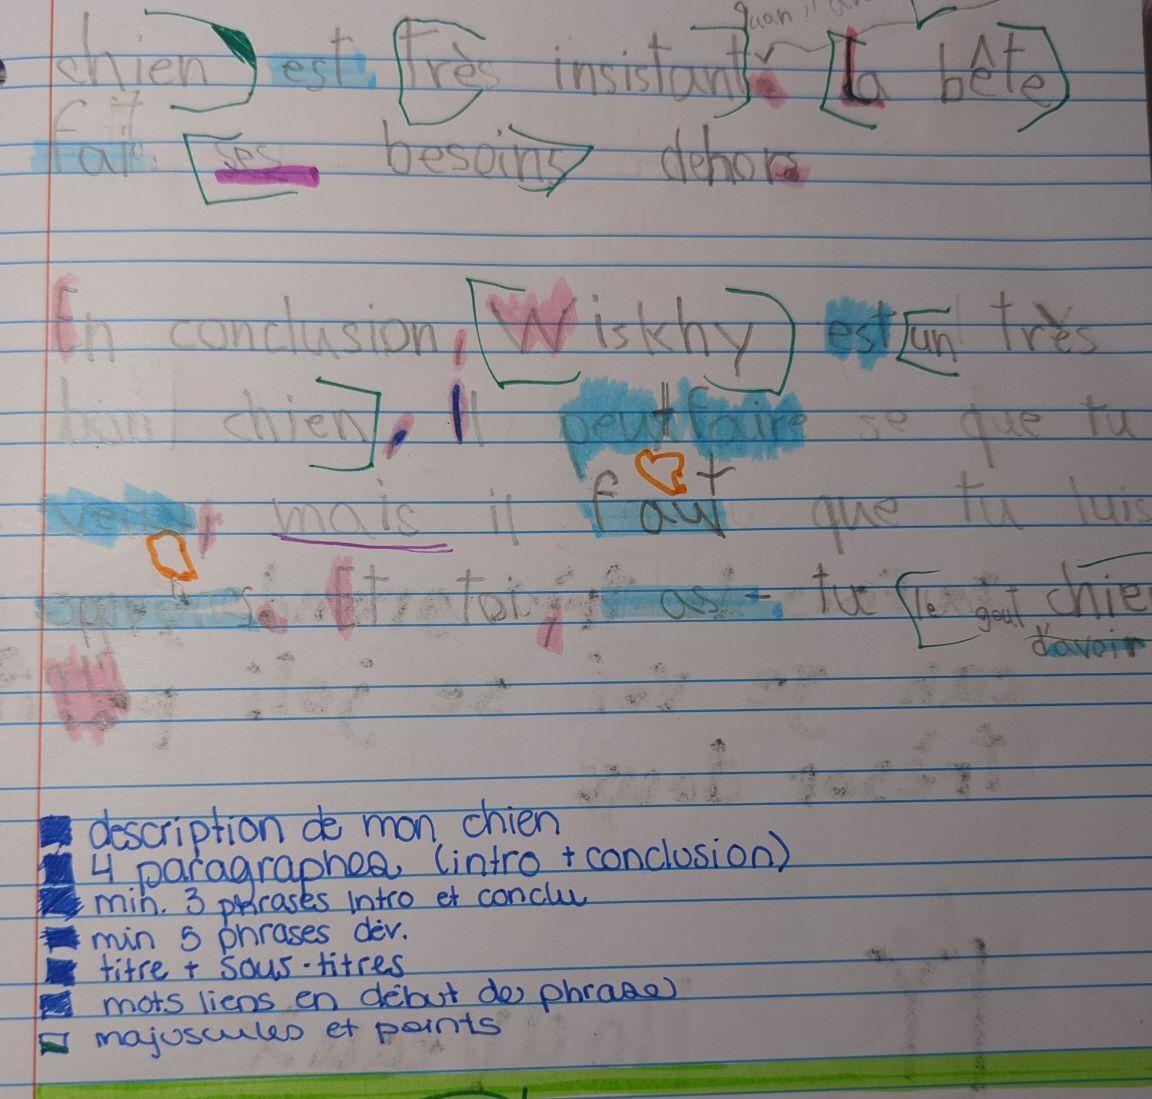 chien est très insistant. La bête
fait ses besoins dehors
En conclusion, Wiskhy est un très
bon chien. Il peut faire se que tu
veux, mais il faut que tu luis
apprenes. Et toi, as-tu le gout chie
d'avoir
description de mon chien
4 paragraphes (intro + conclusion)
min. 3 phrases intro et conclu
min 5 phrases dév.
titre + sous-titres
mots liens en début de phrase
majuscules et points